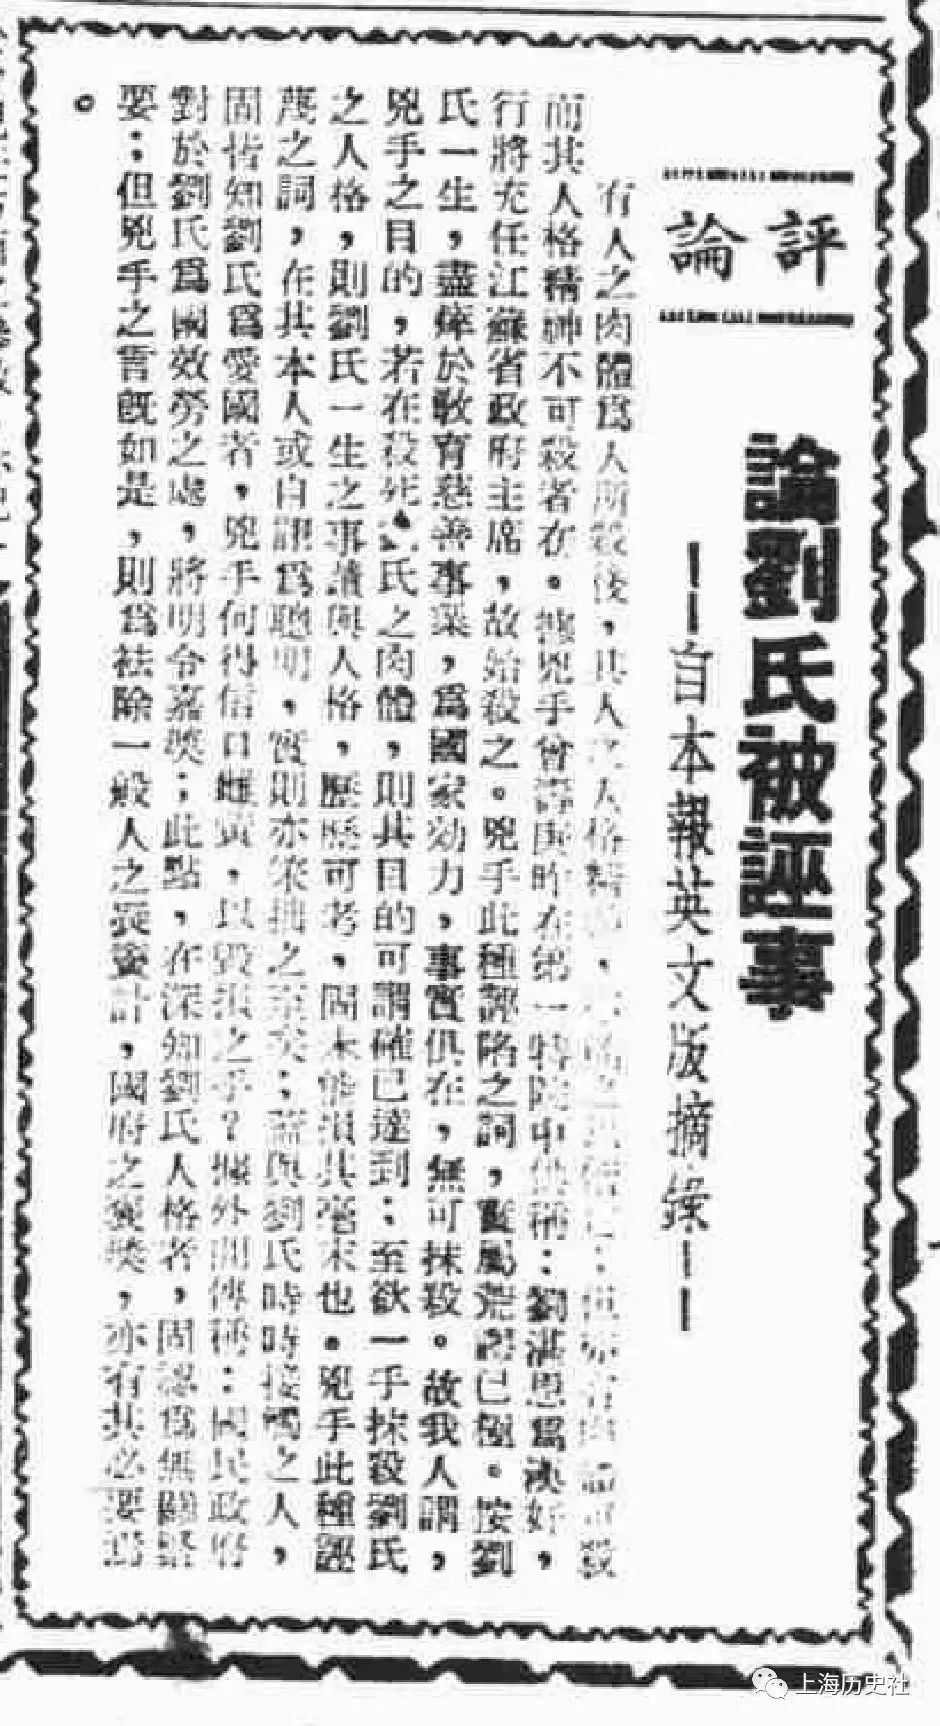 評論
論劉氏被誣事
——自本報英文版摘錄——
有人之肉體爲人所殺後，其人之人格精神，
而其人格精神不可殺者在。兇手曾昨在第一特院中供稱：劉湛恩爲漢奸，
行將充任江蘇省政府主席，故始殺之。兇手此種誣陷之詞，實屬荒謬已極。按劉
氏一生，盡瘁於敎育慈善事業，爲國家効力，事實俱在，無可抹殺。故我人謂，
兇手之目的，若在殺死劉氏之肉體，則其目的可謂確已達到：至欲一手抹殺劉氏
之人格，則劉氏一生之事蹟與人格，歷歷可考，固未能損其毫末也。兇手此種誣
蔑之詞，在其本人或自謂爲聰明，實則亦笨拙之至矣；蓋與劉氏時時接觸之人，
固皆知劉氏爲愛國者，兇手何得信口雌黃，以毀損之乎？據外間傳稱：國民政府
對於劉氏爲國效勞之處，將明令嘉獎；此點，在深知劉氏人格者，固認爲無關緊
要；但兇手之言旣如是，則爲祛除一般人之疑竇計，國府之褒獎，亦有其必要焉
。
上海历史社